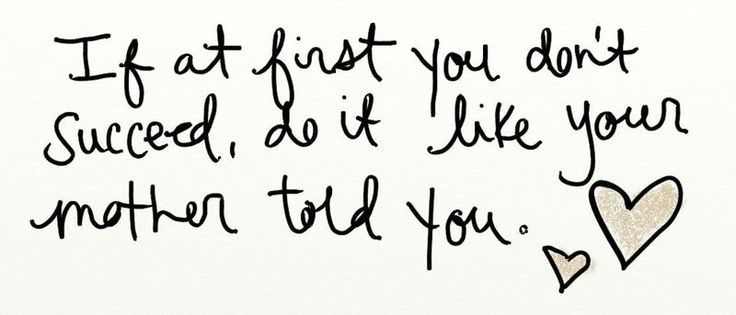 If at first you don't
succeed, do it like your
mother told you.